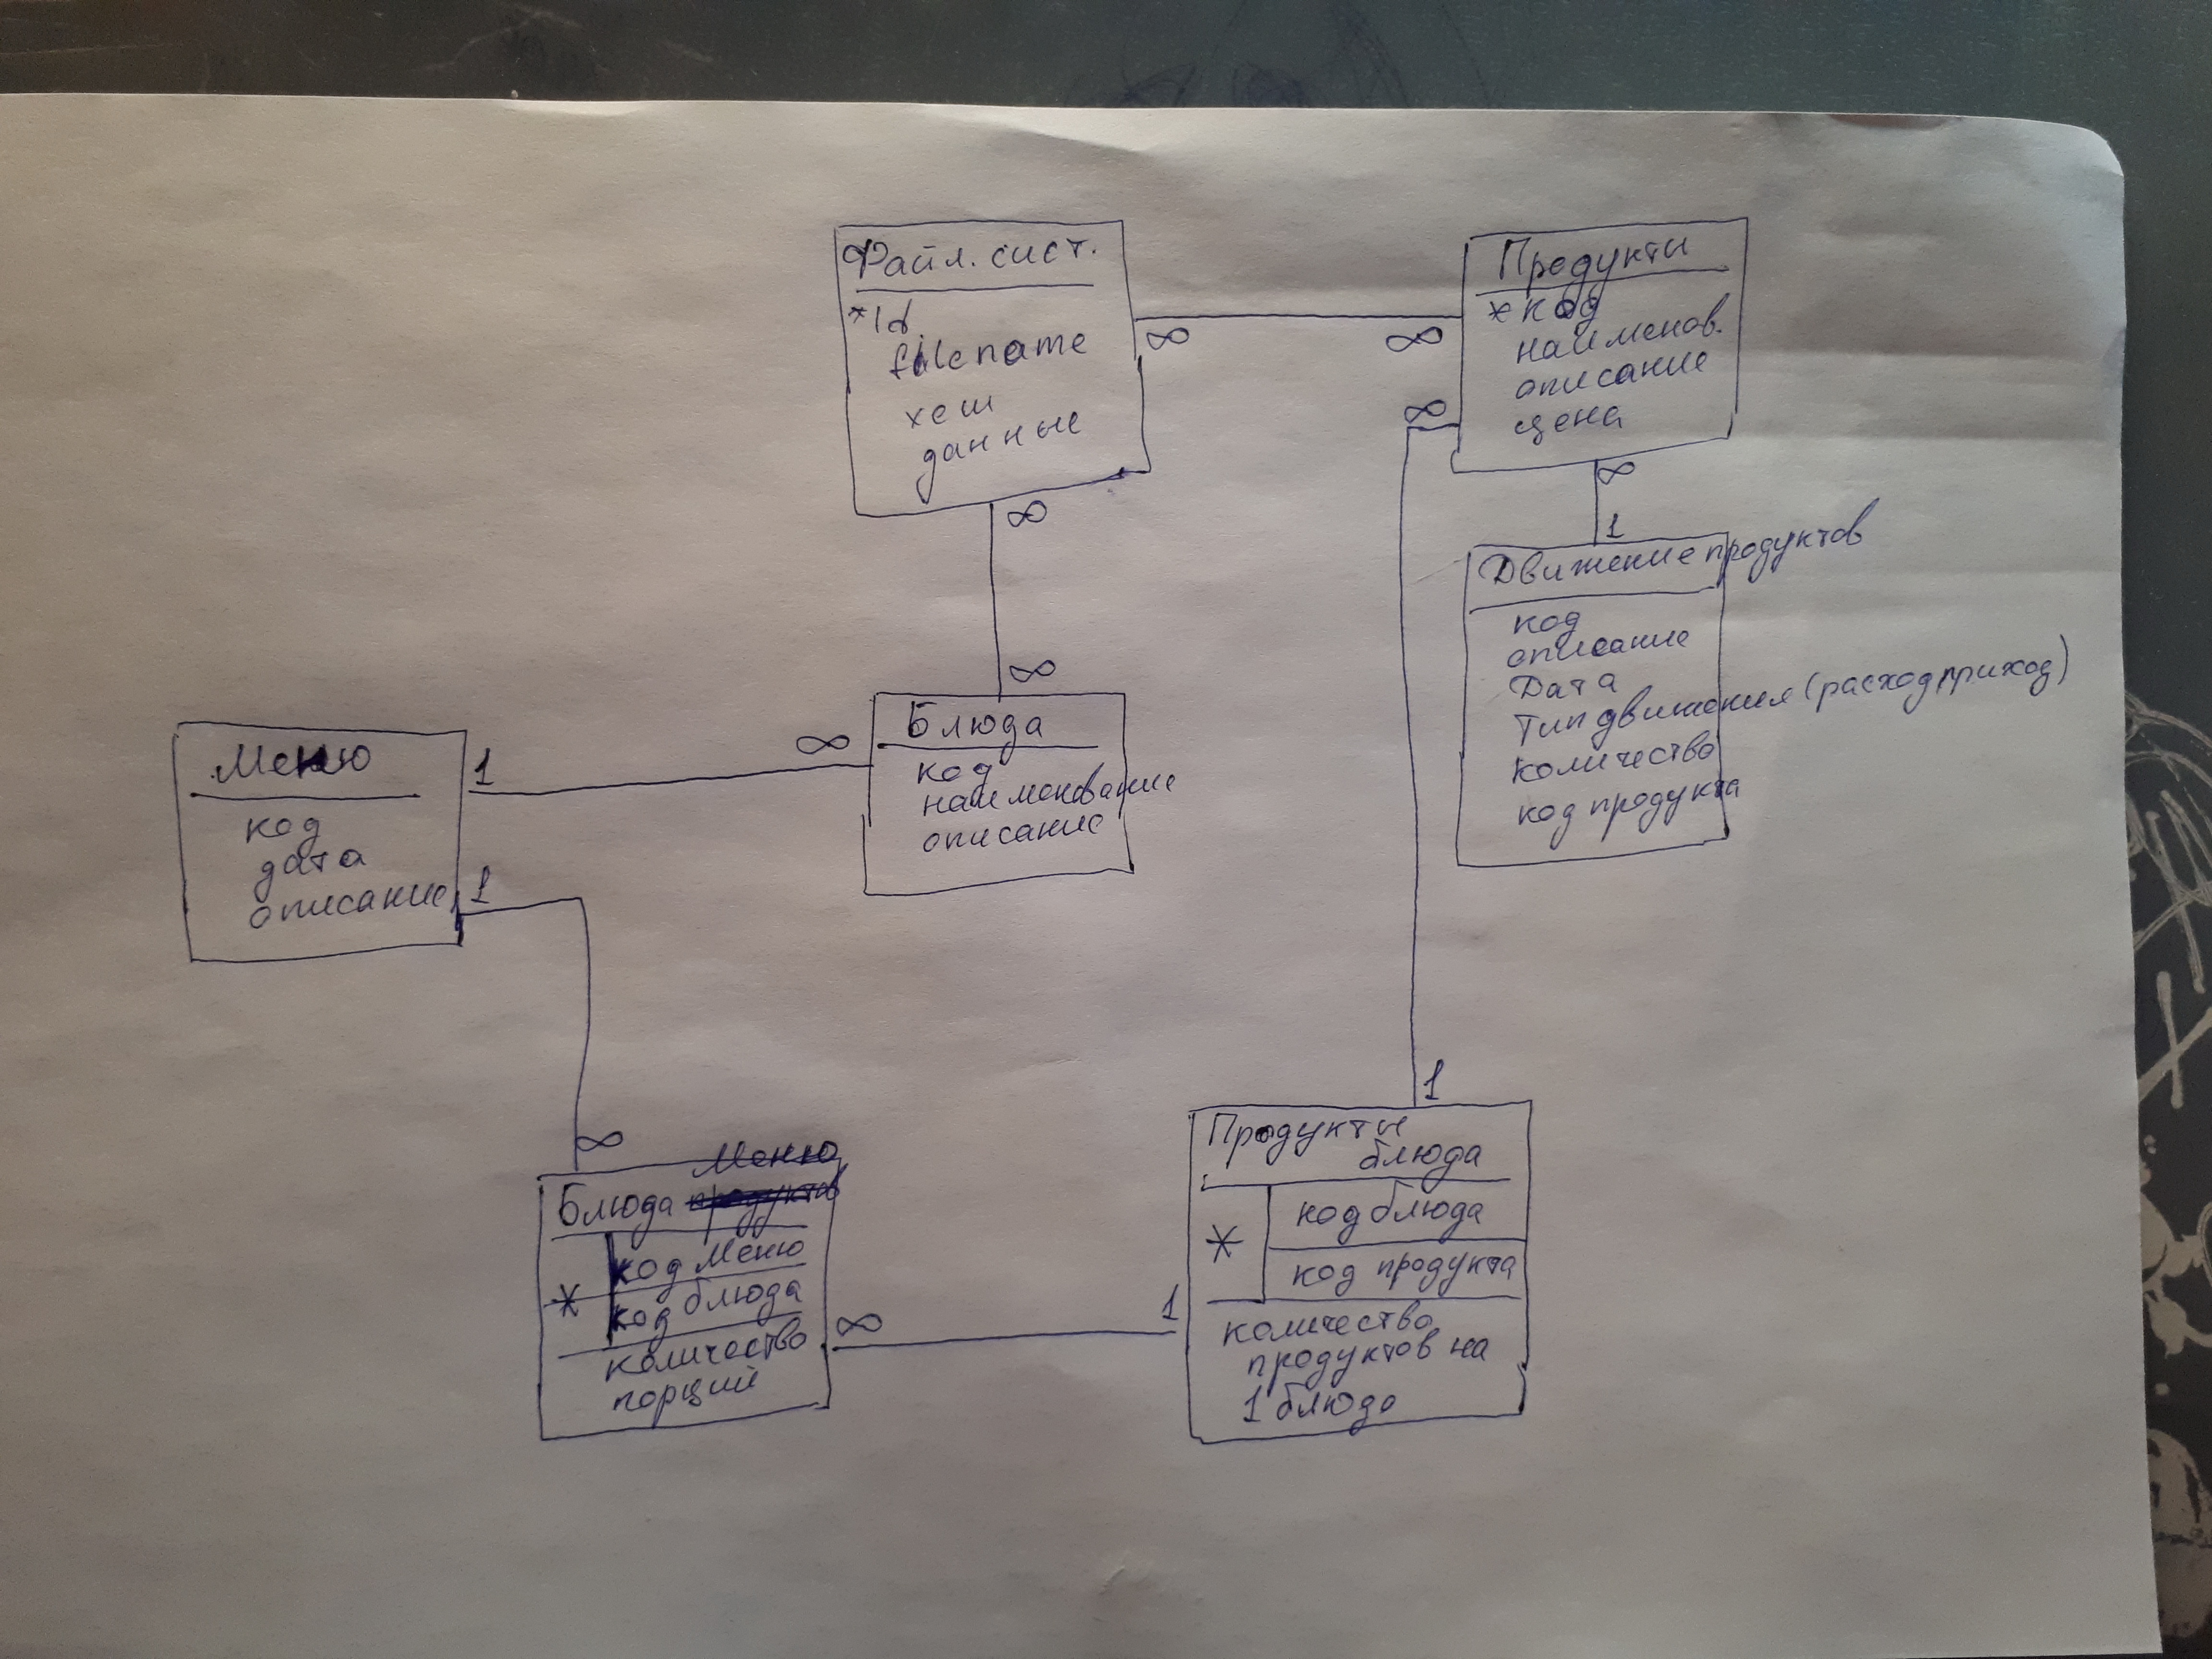 Файл. сист.
*Id
filename
хеш
данные
∞
∞
∞
∞
Продукты
*код
наименов.
описание
цена
∞
∞
1
Движение продуктов
код
описание
Дата
Тип движения (расход приход)
количество
код продукта
Меню
код
дата
описание
1
∞
1
∞
Блюда
код
наименование
описание
Меню
Блюда продуктов
* код Меню
код блюда
количество
порций
∞
1
1
Продукты
блюда
* код блюда
код продукта
количество
продуктов на
1 блюдо